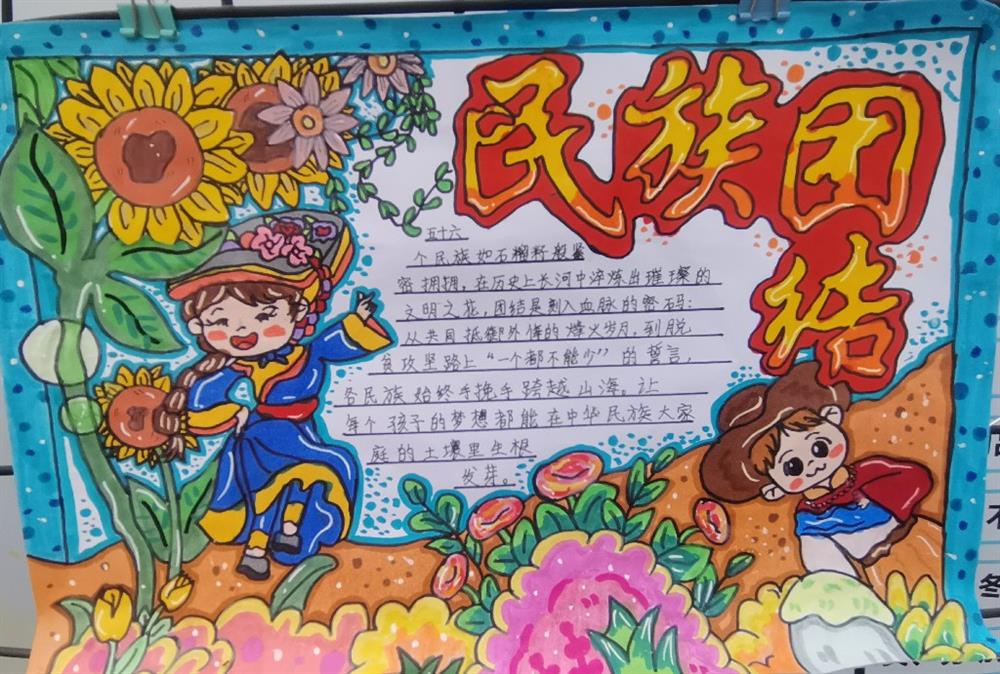 民族团
结
五十六
个民族如石榴籽般紧
密拥抱，在历史上长河中淬炼出璀璨的
文明之花，团结是刻入血脉的密码：
从共同抵御外侮的烽火岁月，到脱
贫攻坚路上“一个都不能少”的誓言，
各民族始终手挽手跨越山海。让
每个孩子的梦想都能在中华民族大家
庭的土壤里生根
发芽。
冬